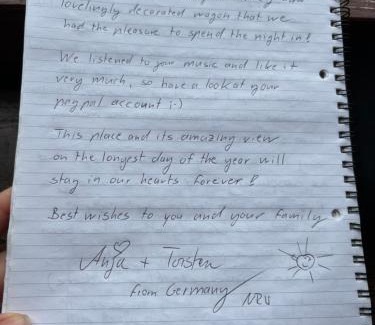 lovelingly decorated wagon that we
had the pleasure to spend the night in!
We listened to your music and like it
very much, so have a look at your
paypal account ;-)
This place and its amazing view
on the longest day of the year will
stay in our hearts forever!
Best wishes to you and your family
Anja + Torsten
from Germany NRW